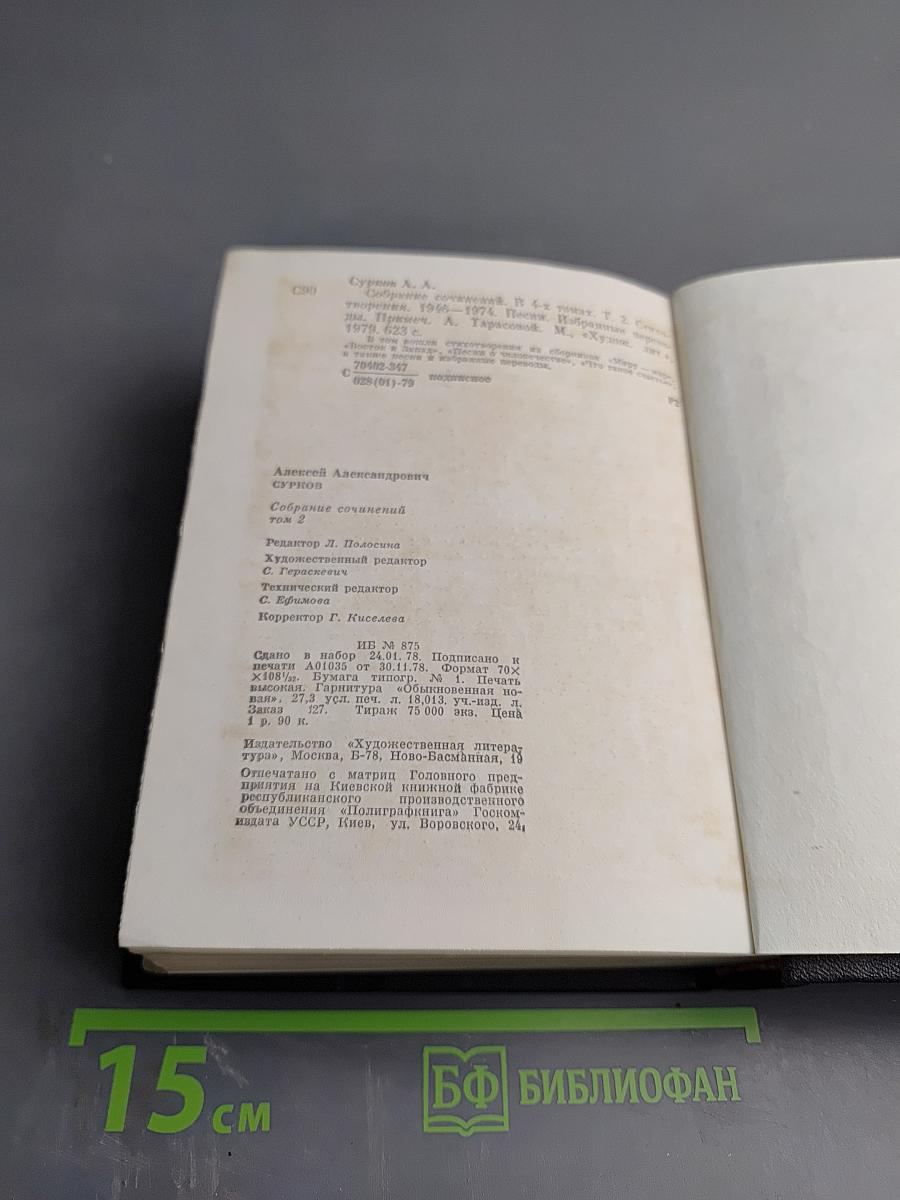 Сурков А. А.
С90
Собрание сочинений. В 4-х томах. Т. 2. Стихо-
творения. 1946—1974. Песни. Избранные перево-
ды. Примеч. А. Тарасовой. М., «Худож. лит.»,
1979. 623 с.
В том вошли стихотворения из сборников «Миру — мир»,
«Восток и Запад», «Песни о человечестве», «Что такое счастье»,
а также песни и избранные переводы.
70402-347
С
028(01)-79
подписное
Р2
Алексей Александрович
СУРКОВ
Собрание сочинений
том 2
Редактор Л. Полосина
Художественный редактор
С. Гераскевич
Технический редактор
С. Ефимова
Корректор Г. Киселева
ИБ № 875
Сдано в набор 24.01.78. Подписано к
печати А01035 от 30.11.78. Формат 70×
×108¹/₃₂. Бумага типогр. № 1. Печать
высокая. Гарнитура «Обыкновенная но-
вая». 27,3 усл. печ. л. 18,013. уч.-изд. л.
Заказ 127. Тираж 75 000 экз. Цена
1 р. 90 к.
Издательство «Художественная литера-
тура», Москва, Б-78, Ново-Басманная, 19
Отпечатано с матриц Головного пред-
приятия на Киевской книжной фабрике
республиканского производственного
объединения «Полиграфкнига» Госком-
издата УССР, Киев, ул. Воровского, 24.
15 см
БФ БИБЛИОФАН